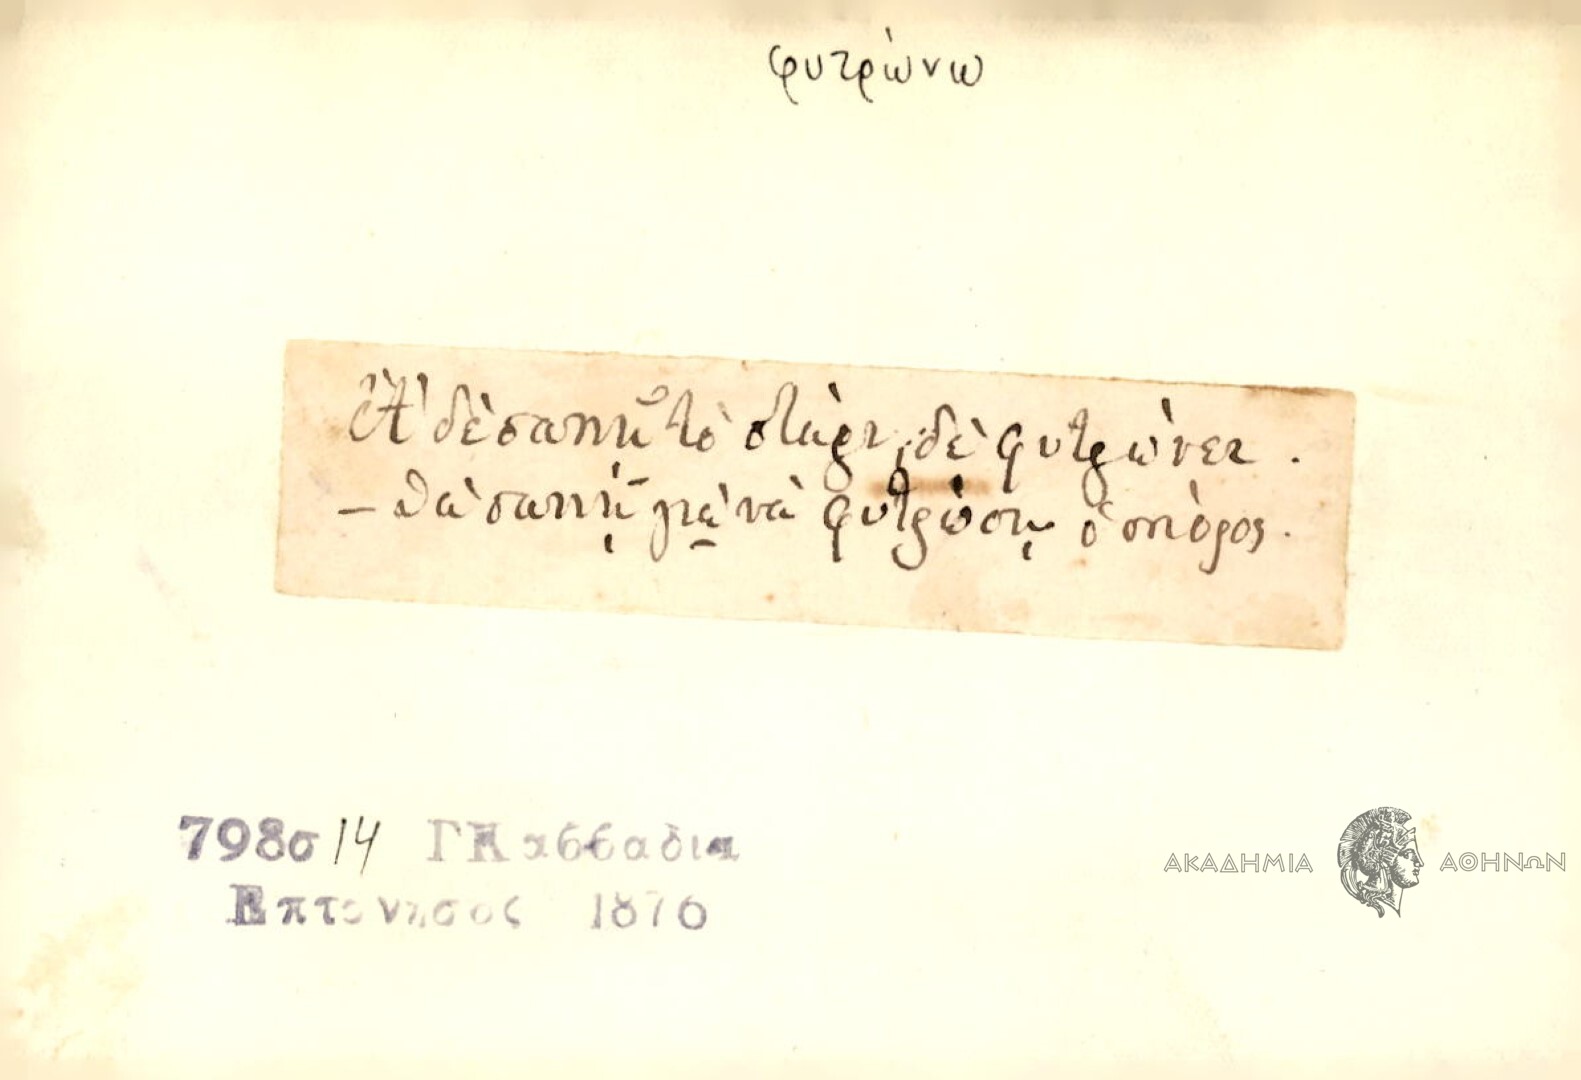 φυτρώνω
Ἂ δὲ σαπῇ τὸ στάρι, δὲ φυτρώνει.
– Θὰ σαπῇ γιὰ νὰ φυτρώσῃ ὁ σπόρος.
798σ14 ΓΚαββαδια
Επτανησος 1876
ΑΚΑΔΗΜΙΑ ΑΘΗΝΩΝ